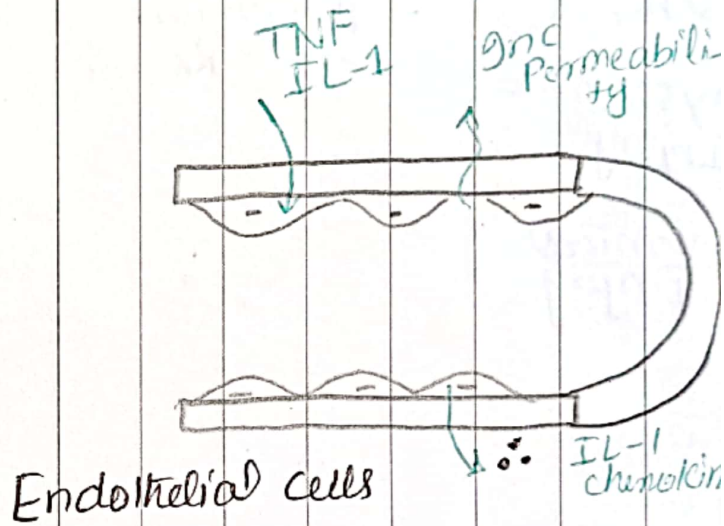 TNF
IL-1
Inc
Permeabili
ty
IL-1
chemokin
Endothelial cells